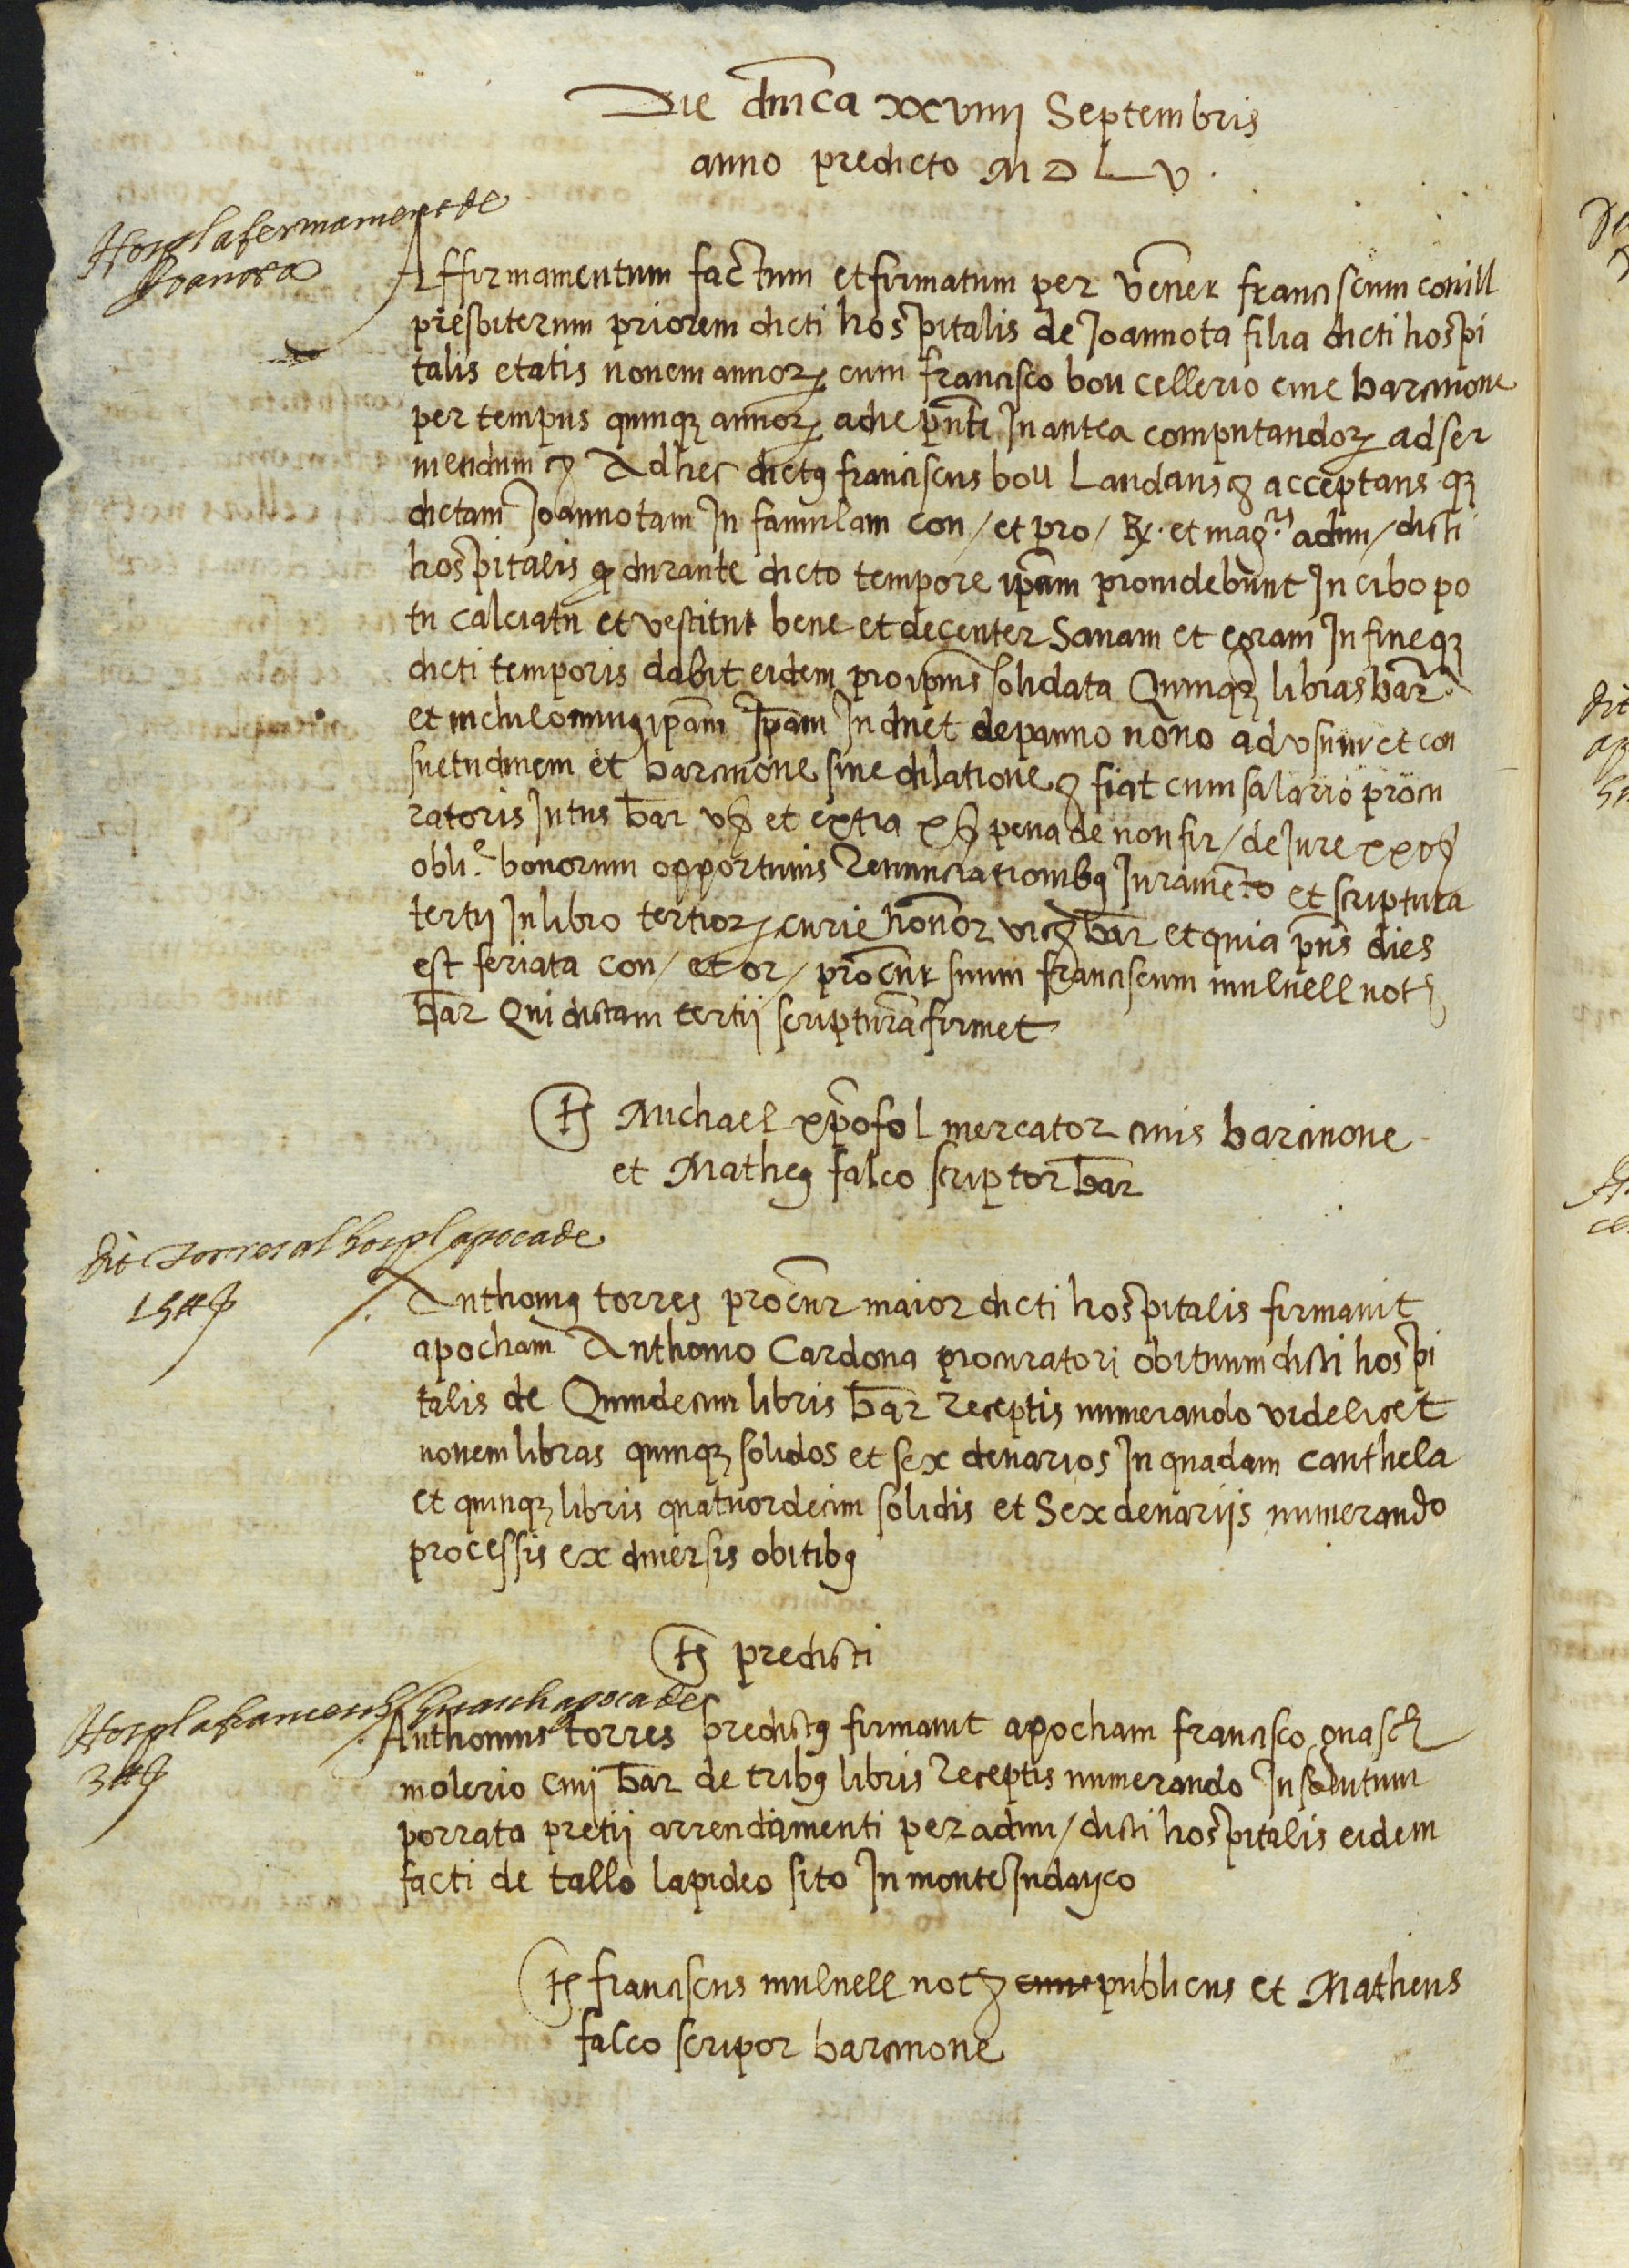 Die dnica xxviiij Septembris
anno predicto MDLV.
Hospl afermament de
Joanota
Affirmamentum factum et firmatum per vener franciscum conill
presbiterum priorem dicti hospitalis de Joannota filia dicti hospi
talis etatis novem annorꝝ cum francisco bou cellerio cive barcinone
per tempus quinqꝫ annorꝝ a die pnti In antea computandorꝝ ad ser
viendum ꝛ Ad hec dictꝯ franciscus bou Laudans ꝛ acceptans qꝫ
dictam Joannotam In famulam con / et pro / Rx. et magᶜⁱˢ adm / dicti
hospitalis ꝙ durante dicto tempore ipam providebunt In cibo po
tu calciatu et vestitur bene et decenter Sanam et egram In fineqꝫ
dicti temporis dabit eidem pro ipius solidata Quinqꝫ libras bar
et ipam Ipam Induet de panno novo ad usum et con
suetudinem et barcinone sine dilatione ꝛ fiat cum salario procu
ratoris Intus bar vß et extra xß pena de non fir / de Jure xxvß
obliᵉ. bonorum opportunis Renunciationibꝯ Juramento et scriptura
tertij In libro tertiorꝝ curie honor vicꝛ bar et quia pns dies
est feriata con / et or / procur suum franciscum mulnell notꝛ
bar Qui dictam tertii scripturam firmet
Tꝭ Michael xpofol mercator civis barcinone
et Matheꝯ falco scriptor bar
dit Torres al hospl apoca de
15 ₶
Anthoniꝯ torres procur maior dicti hospitalis firmavit
apocham Anthonio Cardona procuratori obituum dicti hospi
talis de Quindecim libris bar Receptis numerando videlicet
novem libras quinqꝫ solidos et sex denarios In quadam cauthela
et quinqꝫ libris quatuordecim solidis et Sex denariis numerando
processis ex diversis obitibꝯ
Tꝭ predicti
Hospl afrances Guasch apoca de
3 ₶
Anthonius torres predictꝯ firmavit apocham francisco guasch
molerio civi bar de tribꝯ libris Receptis numerando In solutum
porrata pretii arrendamenti per adm / dicti hospitalis eidem
facti de tallo lapideo sito In monte Judayco
Tꝭ franciscus mulnell notꝛ publicus et Matheus
falco scripor barcinone